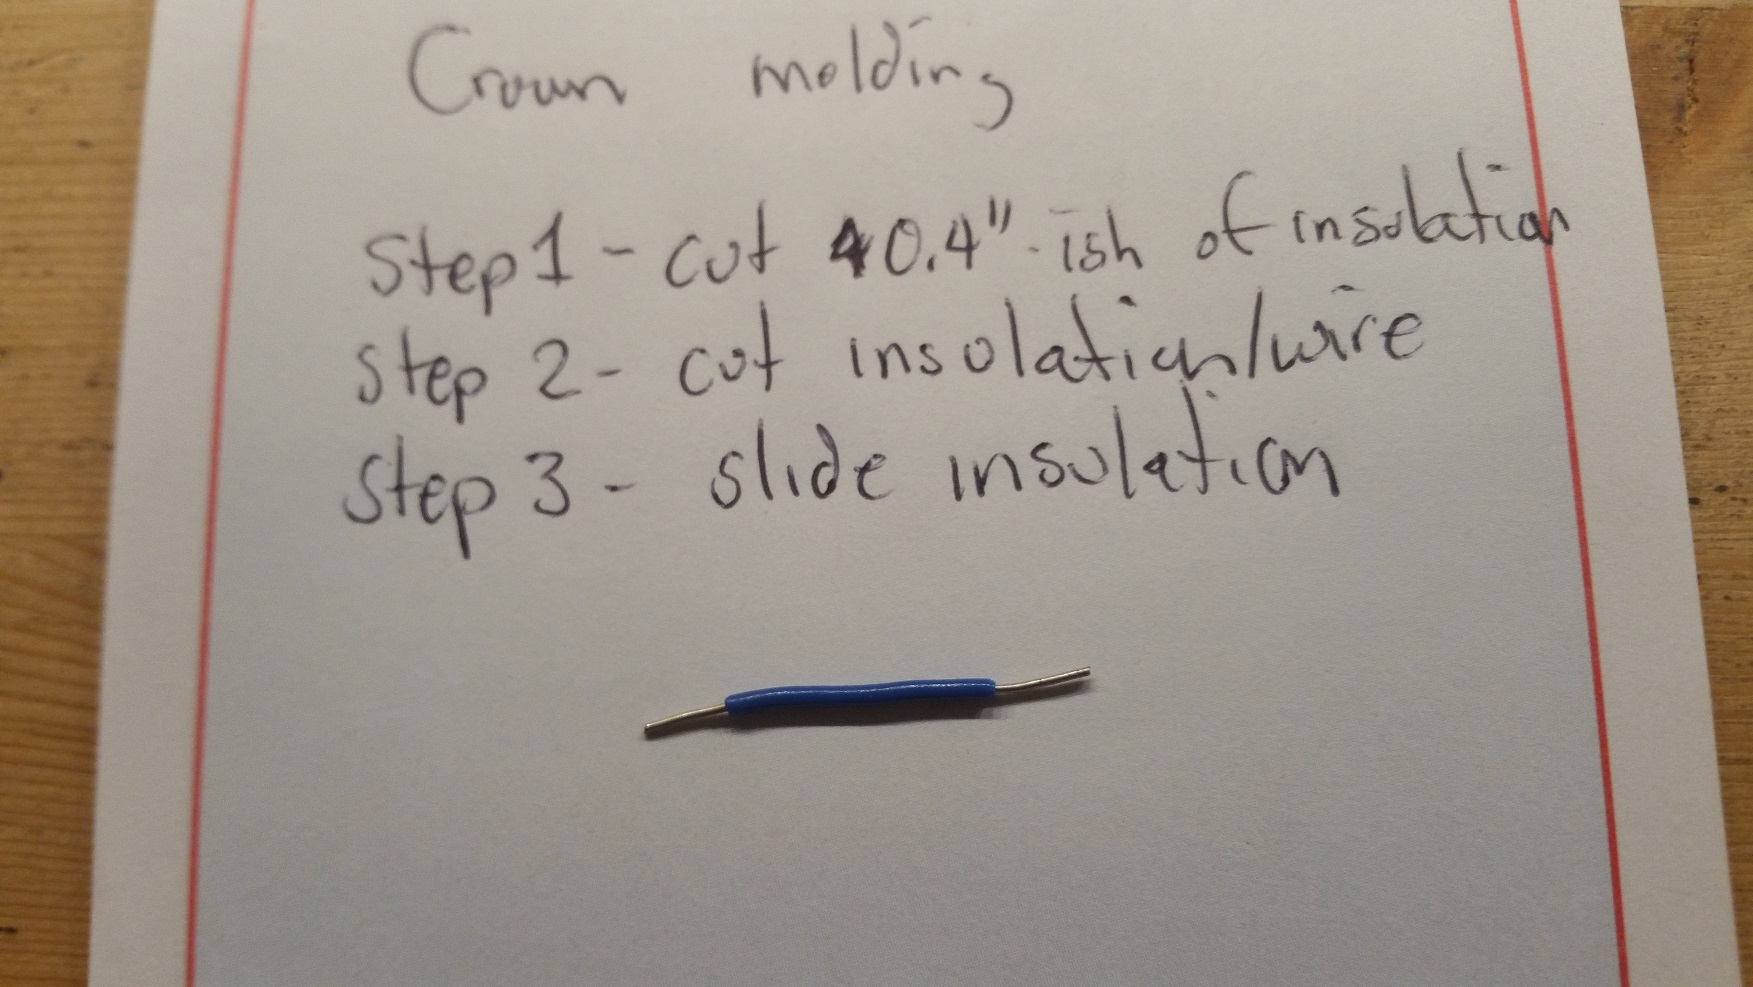 Crown molding
Step 1 - cut 0.4"-ish of insulation
Step 2 - cut insulation/wire
Step 3 - slide insulation